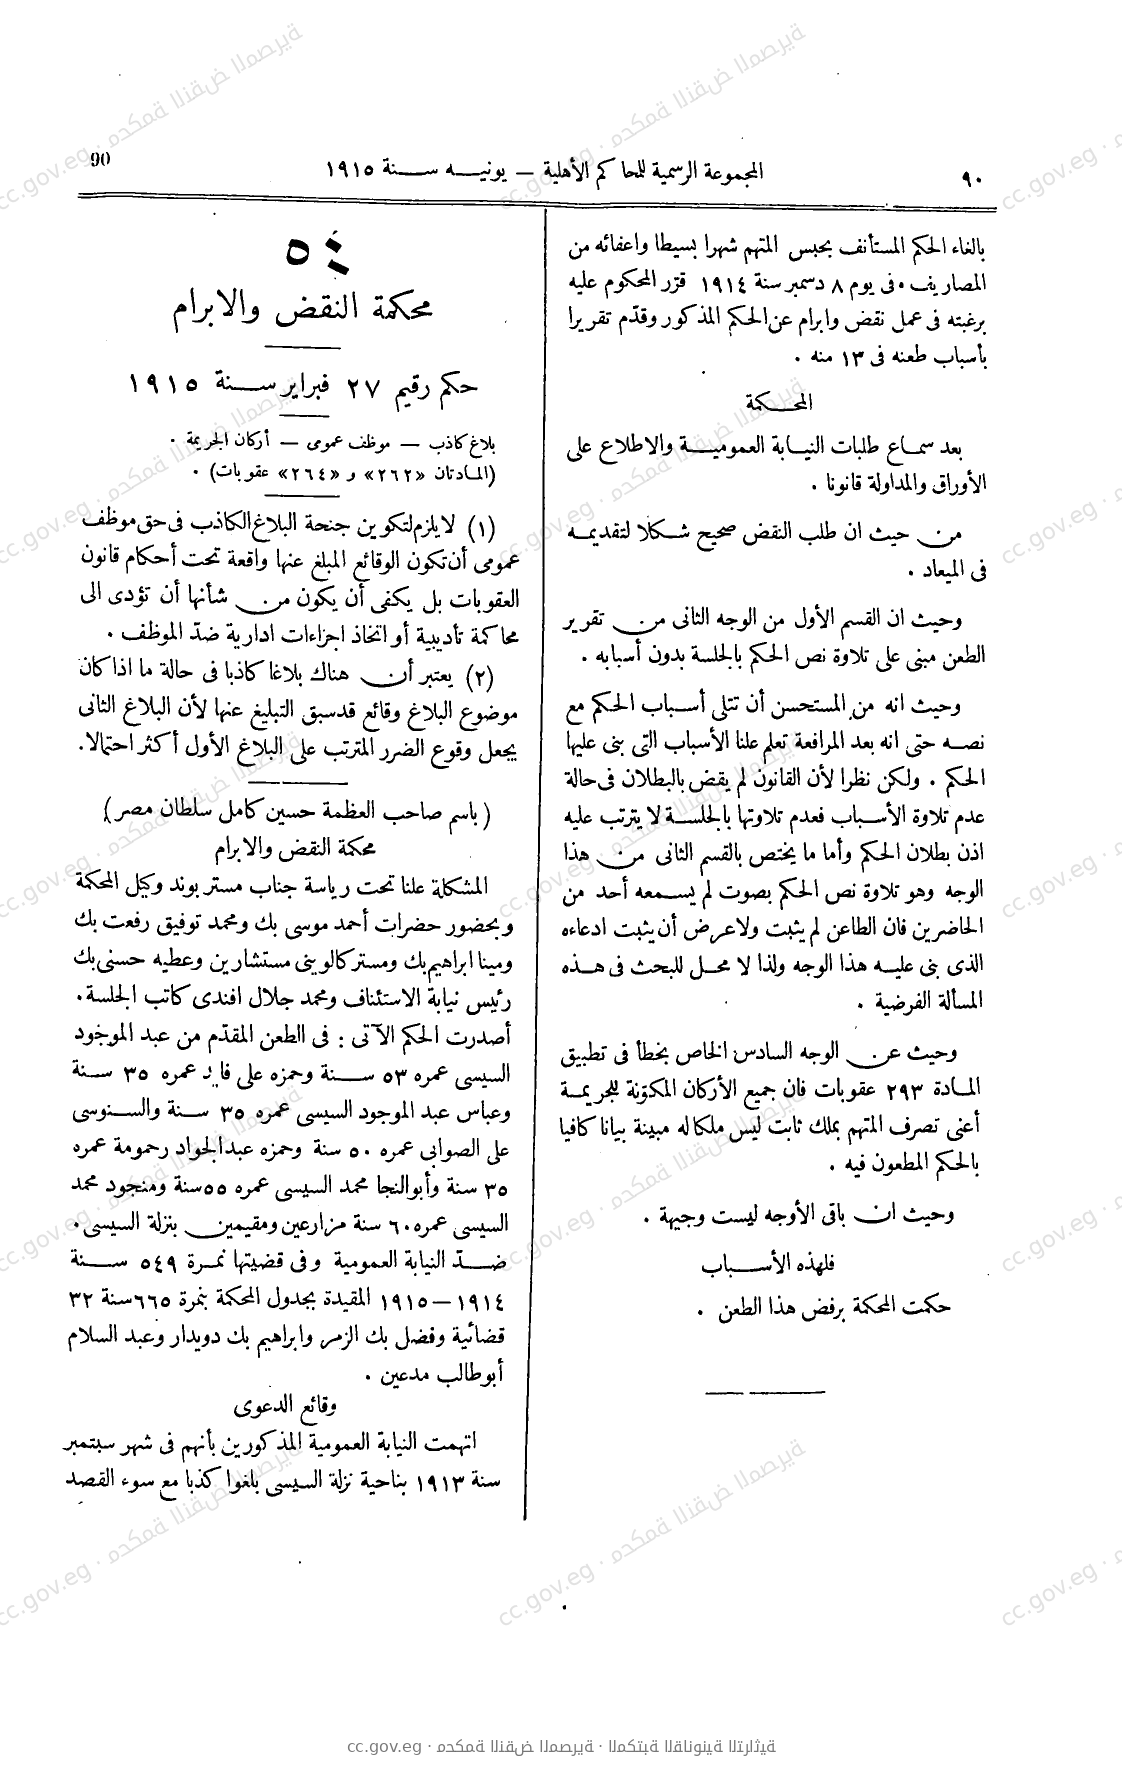 90
المجموعة الرسمية للمحاكم الأهلية — يونيه سنة ١٩١٥
٩٠
بالغاء الحكم المستأنف بحبس المتهم شهرا بسيطا واعفائه من
المصاريف . فى يوم ٨ دسمبر سنة ١٩١٤ قرّر المحكوم عليه
برغبته فى عمل نقض وابرام عن الحكم المذكور وقدّم تقريرا
بأسباب طعنه فى ١٣ منه .
المحكمة
بعد سماع طلبات النيابة العمومية والاطلاع على
الأوراق والمداولة قانونا .
من حيث ان طلب النقض صحيح شكلا لتقديمه
فى الميعاد .
وحيث ان القسم الأول من الوجه الثانى من تقرير
الطعن مبنى على تلاوة نص الحكم بالجلسة بدون أسبابه .
وحيث انه من المستحسن أن تتلى أسباب الحكم مع
نصه حتى انه بعد المرافعة تعلم علنا الأسباب التى بنى عليها
الحكم . ولكن نظرا لأن القانون لم يقض بالبطلان فى حالة
عدم تلاوة الأسباب فعدم تلاوتها بالجلسة لا يترتب عليه
اذن بطلان الحكم وأما ما يختص بالقسم الثانى من هذا
الوجه وهو تلاوة نص الحكم بصوت لم يسمعه أحد من
الحاضرين فان الطاعن لم يثبت ولا عرض أن يثبت ادعاءه
الذى بنى عليه هذا الوجه ولذا لا محل للبحث فى هذه
المسألة الفرضية .
وحيث عن الوجه السادس الخاص بخطأ فى تطبيق
المادة ٢٩٣ عقوبات فان جميع الأركان المكوّنة للجريمة
أعنى تصرف المتهم بملك ثابت ليس ملكا له مبينة بيانا كافيا
بالحكم المطعون فيه .
وحيث ان باقى الأوجه ليست وجيهة .
فلهذه الأسباب
حكمت المحكمة برفض هذا الطعن .
٥٤
محكمة النقض والابرام
حكم رقيم ٢٧ فبراير سنة ١٩١٥
بلاغ كاذب — موظف عمومى — أركان الجريمة .
(المادتان «٢٦٢» و «٢٦٤» عقوبات) .
(١) لا يلزم لتكوين جنحة البلاغ الكاذب فى حق موظف
عمومى أن تكون الوقائع المبلغ عنها واقعة تحت أحكام قانون
العقوبات بل يكفى أن يكون من شأنها أن تؤدى الى
محاكمة تأديبية أو اتخاذ اجراءات ادارية ضدّ الموظف .
(٢) يعتبر أن هناك بلاغا كاذبا فى حالة ما اذا كان
موضوع البلاغ وقائع قد سبق التبليغ عنها لأن البلاغ الثانى
يجعل وقوع الضرر المترتب على البلاغ الأول أكثر احتمالا.
(باسم صاحب العظمة حسين كامل سلطان مصر)
محكمة النقض والابرام
المشكلة علنا تحت رياسة جناب مستر بوند وكيل المحكمة
وبحضور حضرات أحمد موسى بك ومحمد توفيق رفعت بك
ومينا ابراهيم بك ومستر كالوينى مستشارين وعطيه حسنى بك
رئيس نيابة الاستئناف ومحمد جلال افندى كاتب الجلسة .
أصدرت الحكم الآتى : فى الطعن المقدّم من عبد الموجود
السيسى عمره ٥٣ سنة وحمزه على فايد عمره ٣٥ سنة
وعباس عبد الموجود السيسى عمره ٣٥ سنة والسنوسى
على الصوابى عمره ٥٠ سنة وحمزه عبد الجواد رحمومة عمره
٣٥ سنة وأبو النجا محمد السيسى عمره ٥٥ سنة ومنجود محمد
السيسى عمره ٦٠ سنة مزارعين ومقيمين بنزلة السيسى .
ضدّ النيابة العمومية وفى قضيتها نمرة ٥٤٩ سنة
١٩١٤ — ١٩١٥ المقيدة بجدول المحكمة بنمرة ٦٦٥ سنة ٣٢
قضائية وفضل بك الزمر وابراهيم بك دويدار وعبد السلام
أبو طالب مدعين .
وقائع الدعوى
اتهمت النيابة العمومية المذكورين بأنهم فى شهر سبتمبر
سنة ١٩١٣ بناحية نزلة السيسى بلغوا كذبا مع سوء القصد
cc.gov.eg · محكمة النقض المصرية · المكتبة القانونية التراثية